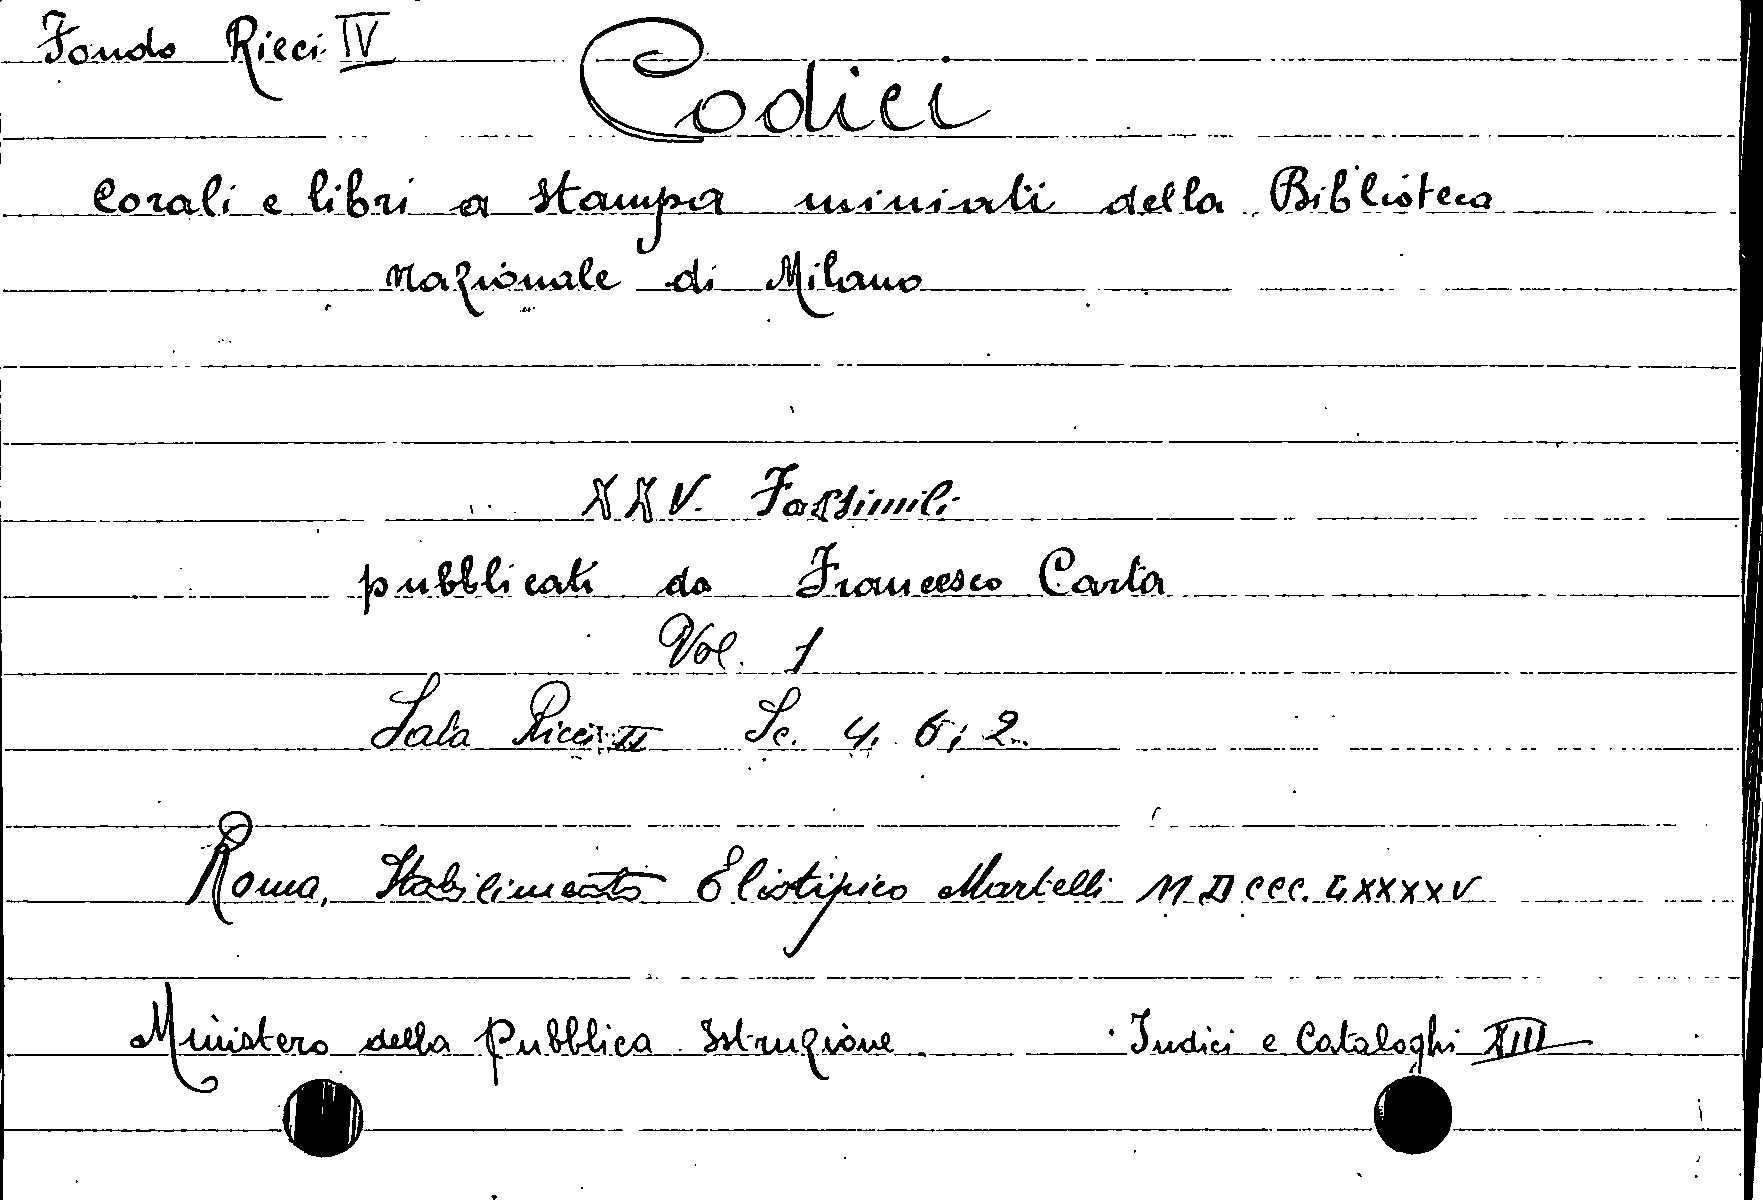 Fondo Ricci IV
Codici
corali e libri a stampa miniati della Biblioteca
nazionale di Milano
XXV. Fassimili
pubblicati da Francesco Carta
Vol. 1
Sala Ricci II Sc. 4, 6, 2.
Roma, Stabilimento Eliotipico Martelli MDCCC.LXXXXV
Ministero della Pubblica Istruzione Indici e Cataloghi XIII